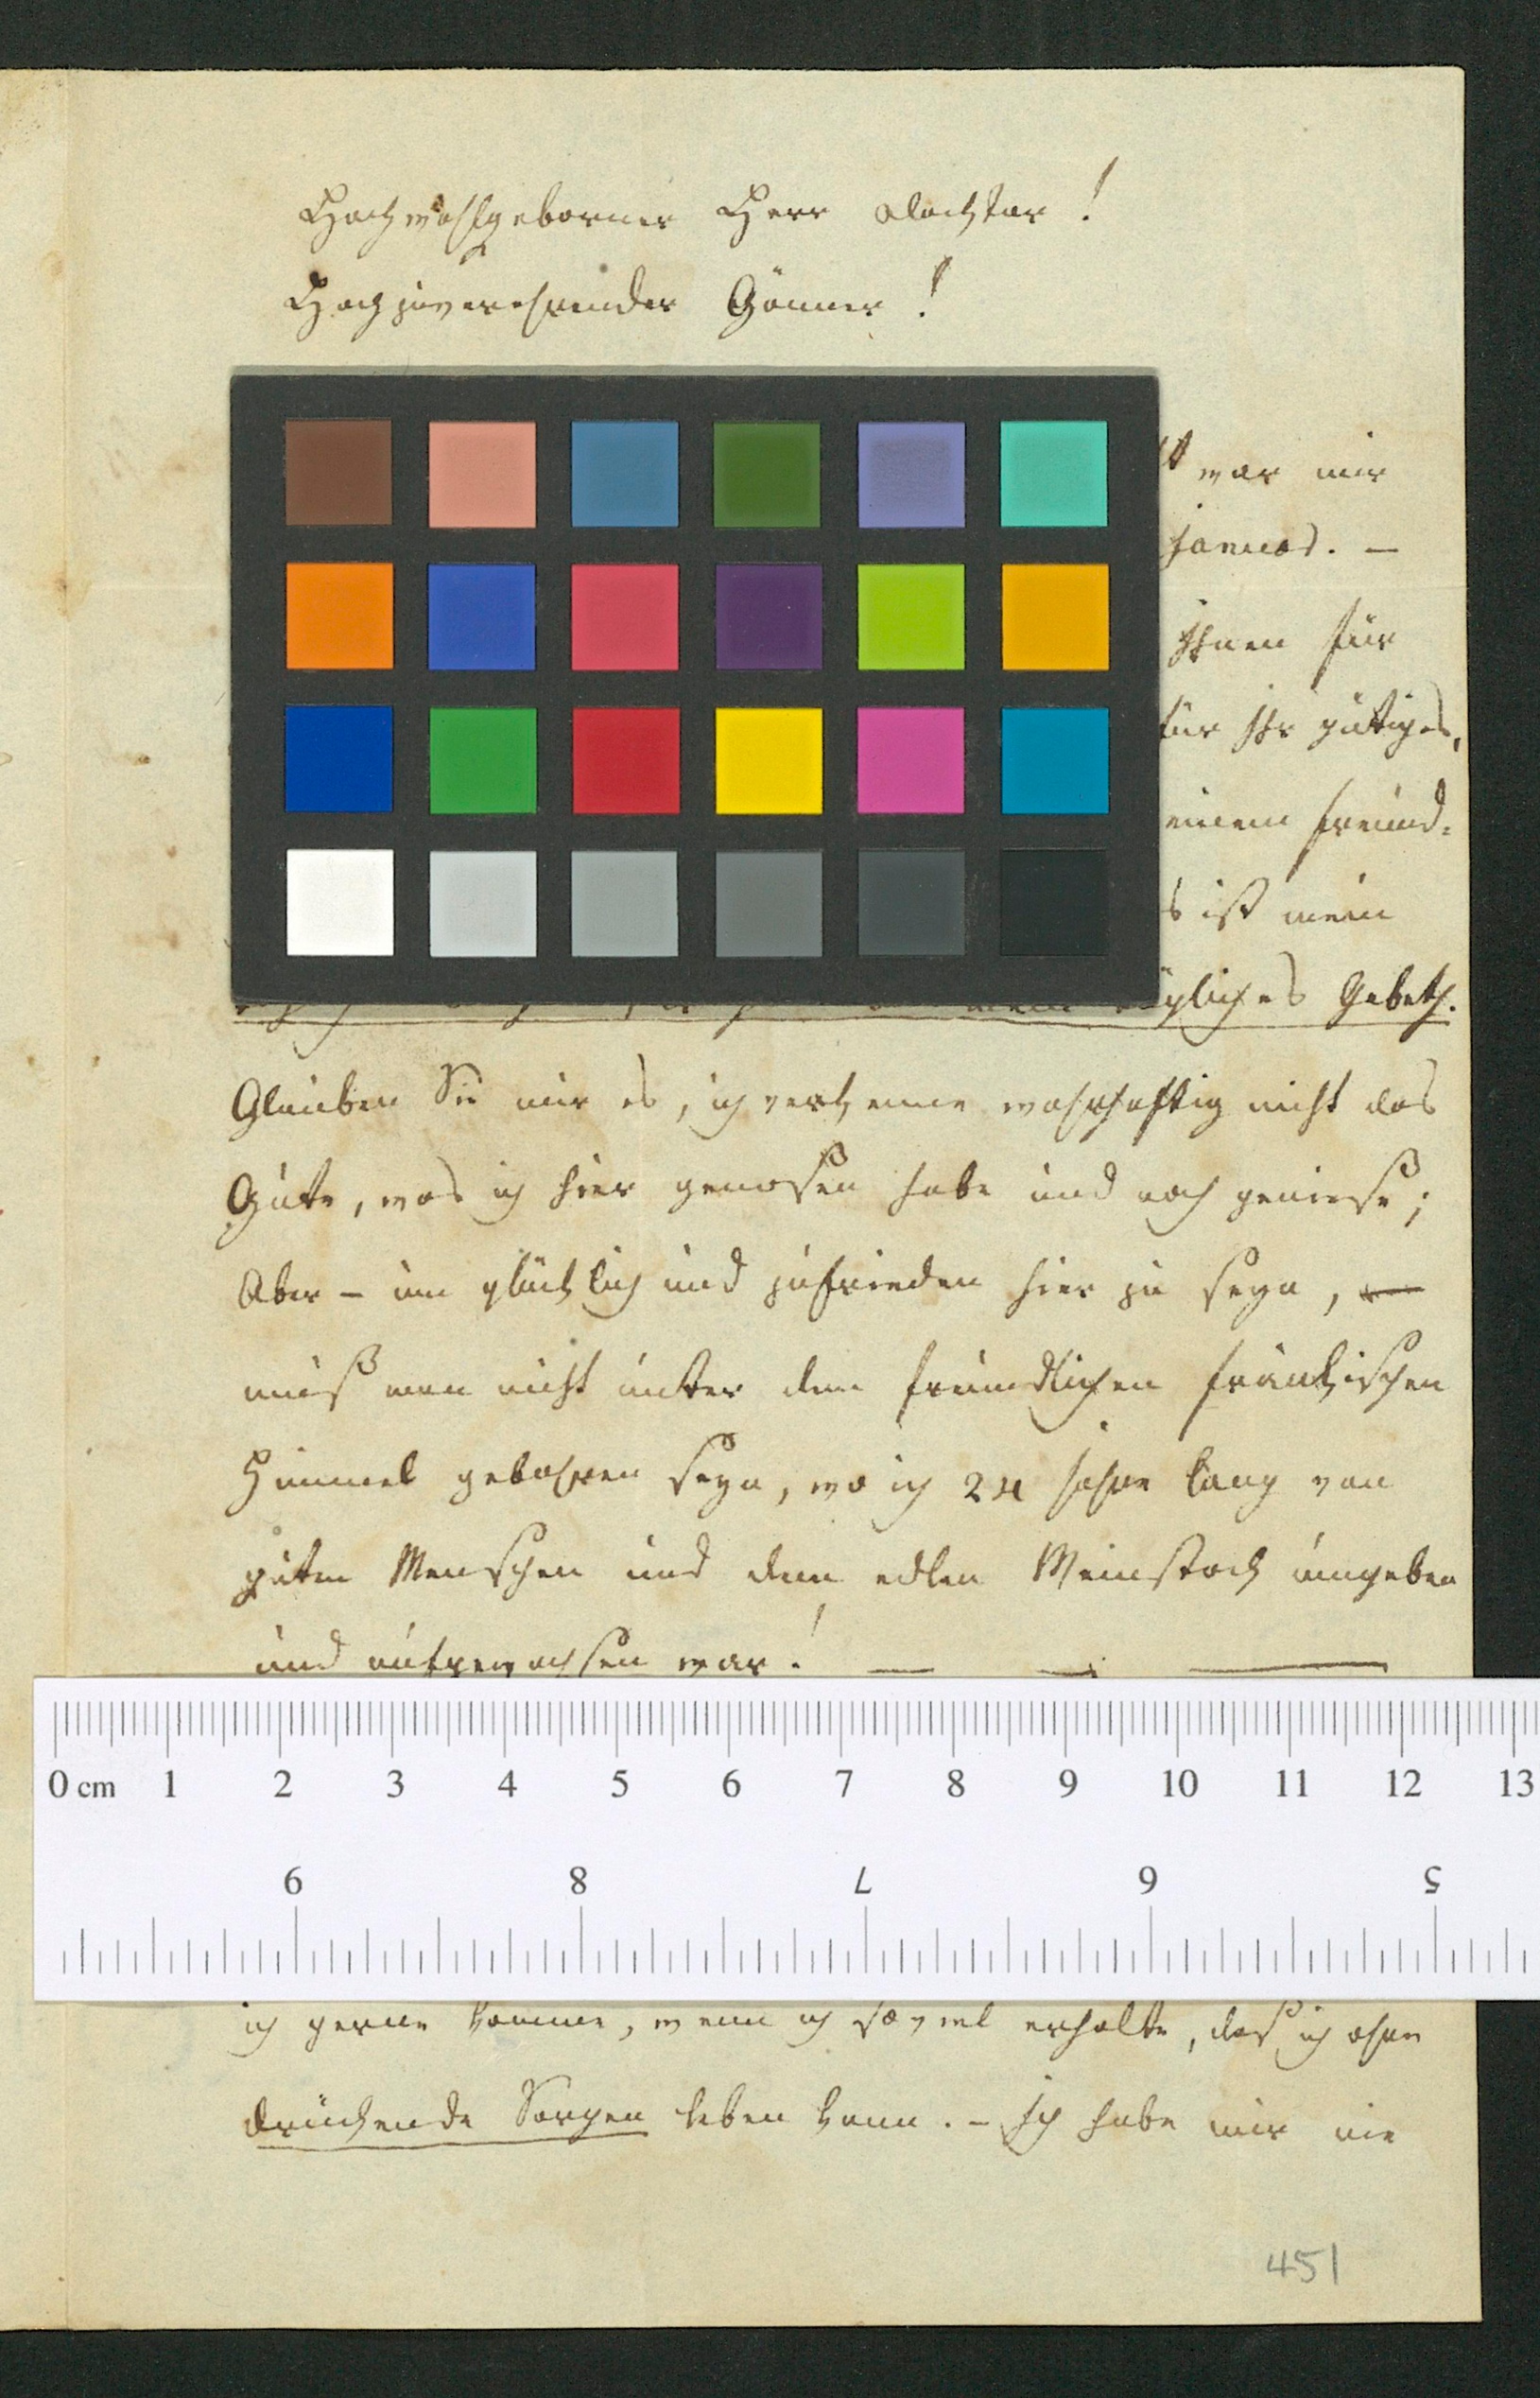 Hochwohlgeborner Herr Docktor!
Hochzuverehrender Gönner!
war mir
Januars. –
Ihnen für
für Ihr gütiges,
einem freund-
ist mein
tägliches Gebeth.
Glauben Sie mir es, ich verkenne wahrhaftig nicht das
Gute, was ich hier genoßen habe und noch genieße;
Aber – um glücklich und zufrieden hier zu seyn, –
muß man nicht unter dem freundlichen fränkischen
Himmel gebohren seyn, wo ich 24 Jahre lang von
guten Menschen und dem edlen Weinstock umgeben
und aufgewachsen war! — — —
0 cm 1 2 3 4 5 6 7 8 9 10 11 12 13
9 8 7 6 5
ich gerne komme, wenn ich so viel erhalte, daß ich ohne
drückende Sorgen leben kann. – Ich habe mir nie
451